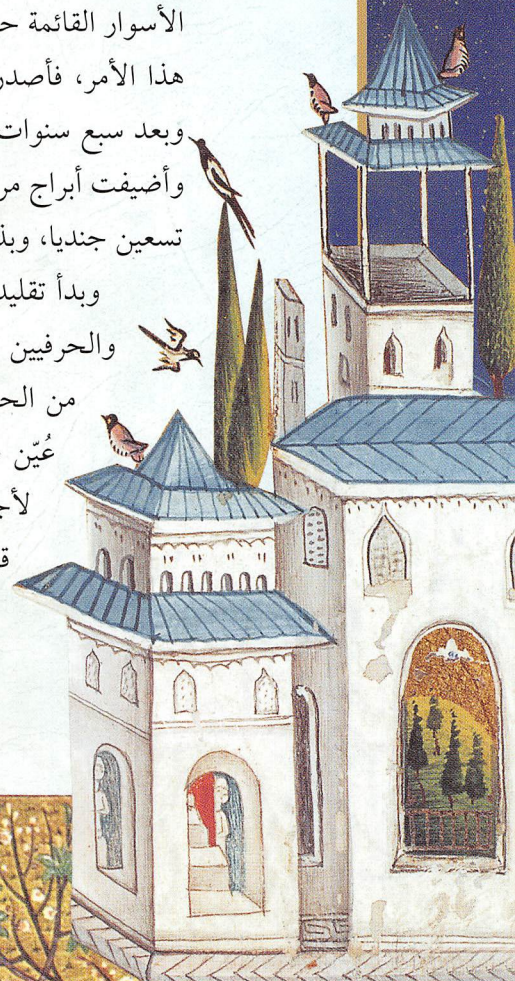 الأسوار القائمة
هذا الأمر، فأصدر
وبعد سبع سنوات
وأضيفت أبراج
تسعين جنديا،
وبدأ تقليد
والحرفيين
من
عُيّن